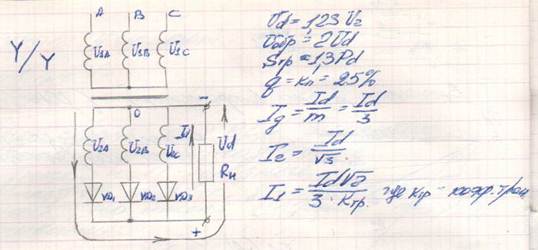 A B C
Y/Y
U1A U1B U1C
0 -
U2A U2B U2C Id Ud
Rн
VD1 VD2 VD3
+
Ud = 1,23 U2
Uобр = 2Ud
Sтр = 1,3Pd
q = кп = 25%
Ig = Id/m = Id/3
I2 = Id/√3.
I1 = Id√2/3·Kтр. где kтр -